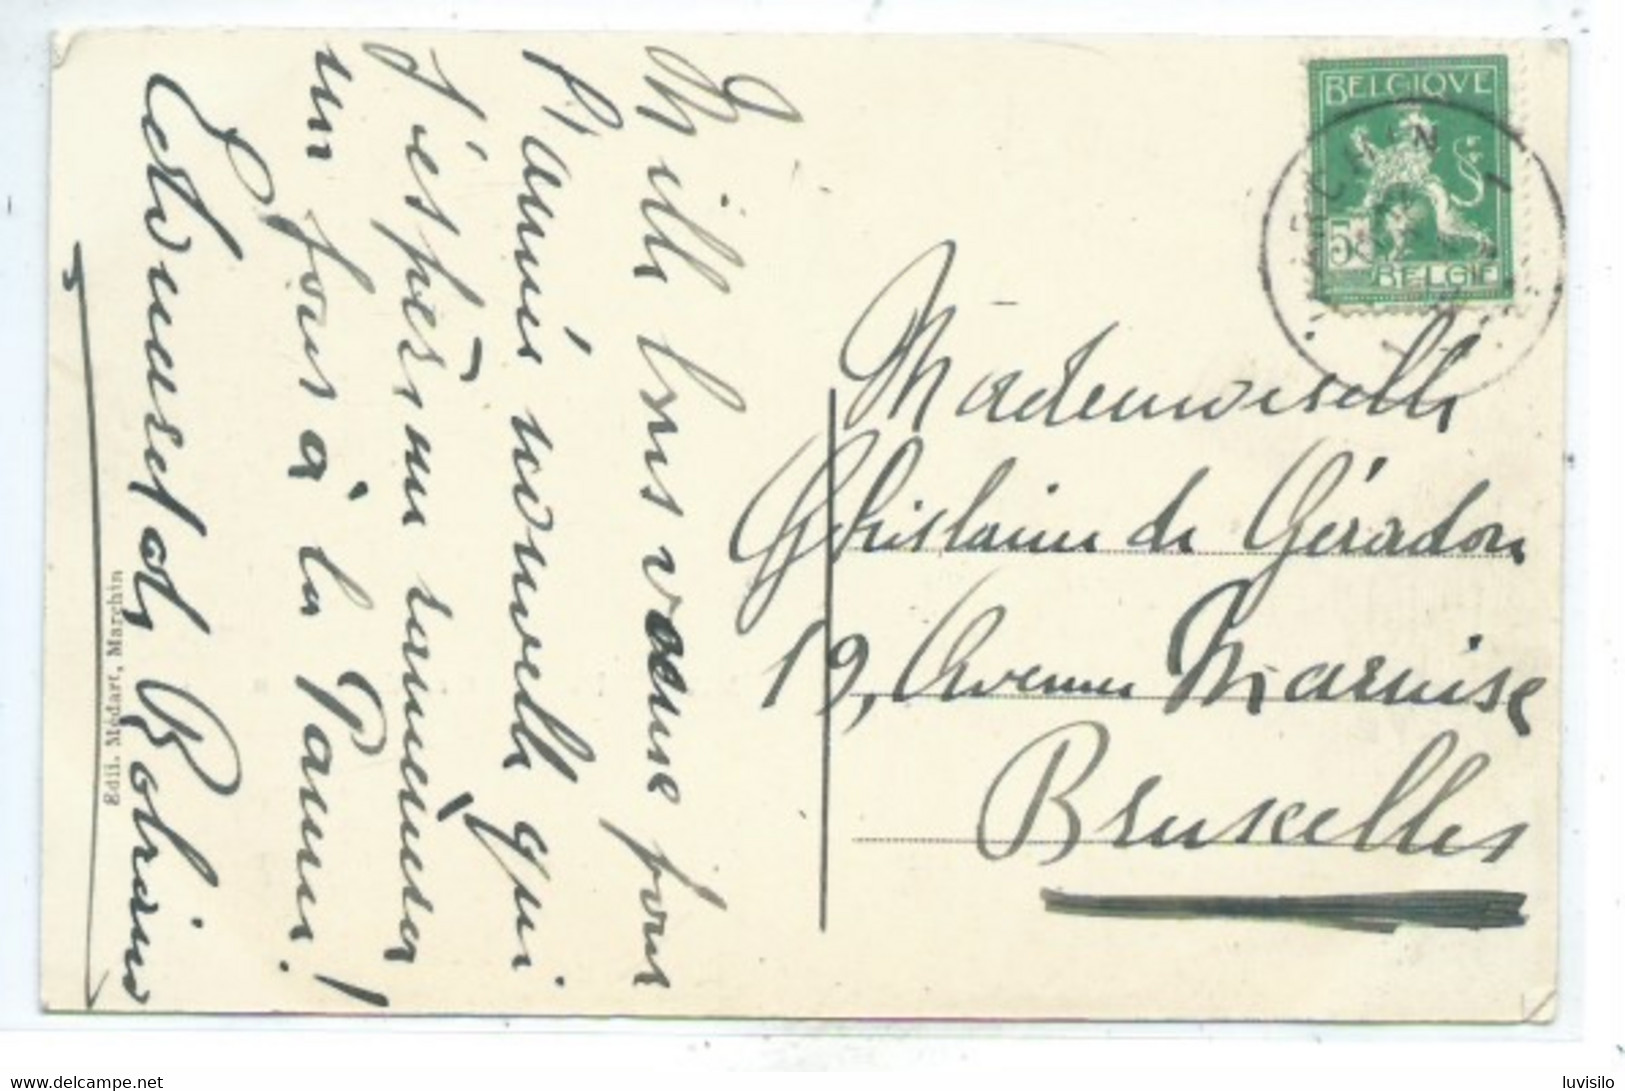 Mille bons vœux pour
l'année nouvelle qui
j'espère nous ramènera
un jour à la Panne!
Edmund de Robiano
Edit. Médart, Marchin
BELGIQVE
5
BELGIË
Mademoiselle
Ghislaine de Géradon
19, Avenue Marnise
Bruxelles
www.delcampe.net
luvisilo